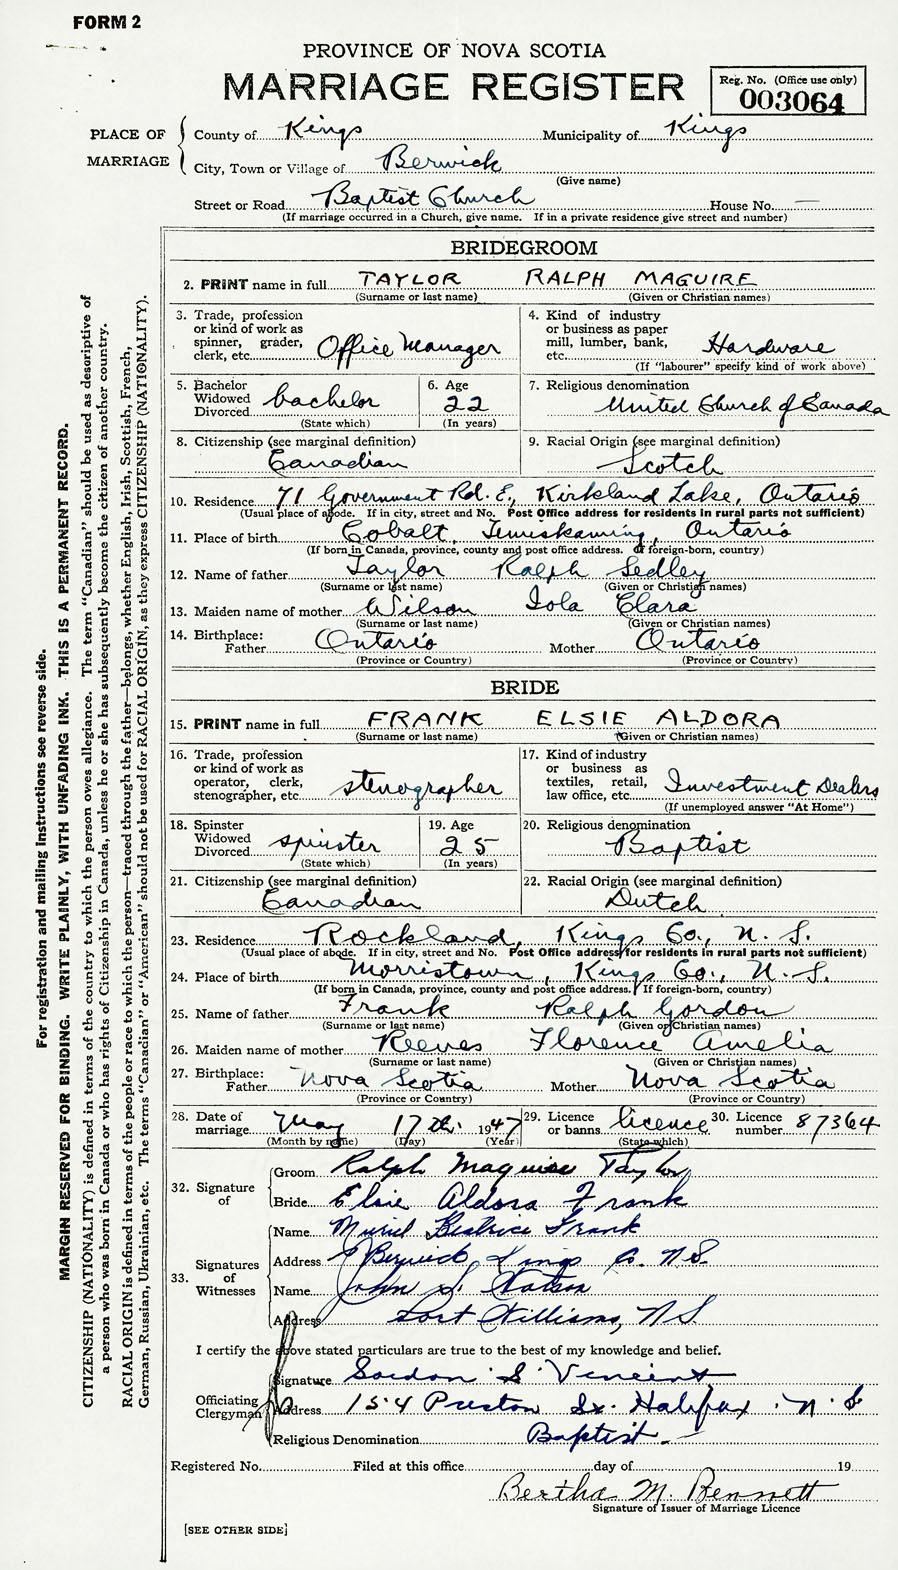 FORM 2
PROVINCE OF NOVA SCOTIA
MARRIAGE REGISTER
Reg. No. (Office use only)
003064
PLACE OF MARRIAGE
County of Kings Municipality of Kings
City, Town or Village of Berwick
(Give name)
Street or Road Baptist Church House No. —
(If marriage occurred in a Church, give name. If in a private residence give street and number)
BRIDEGROOM
2. PRINT name in full TAYLOR RALPH MAGUIRE
(Surname or last name) (Given or Christian names)
3. Trade, profession or kind of work as spinner, grader, clerk, etc. Office Manager
4. Kind of industry or business as paper mill, lumber, bank, etc. Hardware
(If "labourer" specify kind of work above)
5. Bachelor Widowed Divorced bachelor
(State which)
6. Age 22
(In years)
7. Religious denomination United Church of Canada
8. Citizenship (see marginal definition) Canadian
9. Racial Origin (see marginal definition) Scotch
10. Residence 71 Government Rd. E., Kirkland Lake, Ontario
(Usual place of abode. If in city, street and No. Post Office address for residents in rural parts not sufficient)
11. Place of birth Cobalt, Temiskaming, Ontario
(If born in Canada, province, county and post office address. If foreign-born, country)
12. Name of father Taylor Ralph Sedley
(Surname or last name) (Given or Christian names)
13. Maiden name of mother Wilson Iola Clara
(Surname or last name) (Given or Christian names)
14. Birthplace: Father Ontario Mother Ontario
(Province or Country) (Province or Country)
BRIDE
15. PRINT name in full FRANK ELSIE ALDORA
(Surname or last name) (Given or Christian names)
16. Trade, profession or kind of work as operator, clerk, stenographer, etc. stenographer
17. Kind of industry or business as textiles, retail, law office, etc. Investment Dealers
(If unemployed answer "At Home")
18. Spinster Widowed Divorced spinster
(State which)
19. Age 25
(In years)
20. Religious denomination Baptist
21. Citizenship (see marginal definition) Canadian
22. Racial Origin (see marginal definition) Dutch
23. Residence Rockland, Kings Co., N. S.
(Usual place of abode. If in city, street and No. Post Office address for residents in rural parts not sufficient)
24. Place of birth Morristown, Kings Co., N. S.
(If born in Canada, province, county and post office address. If foreign-born, country)
25. Name of father Frank Ralph Gordon
(Surname or last name) (Given or Christian names)
26. Maiden name of mother Reeves Florence Amelia
(Surname or last name) (Given or Christian names)
27. Birthplace: Father Nova Scotia Mother Nova Scotia
(Province or Country) (Province or Country)
28. Date of marriage May 17th 1947
(Month by name) (Day) (Year)
29. Licence or banns. licence
(State which)
30. Licence number. 87364
32. Signature of
Groom Ralph Maguire Taylor
Bride Elsie Aldora Frank
33. Signatures of Witnesses
Name Muriel Beatrice Frank
Address Berwick, Kings Co. N.S.
Name John S. Watson
Address Port Williams, N.S.
I certify the above stated particulars are true to the best of my knowledge and belief.
Officiating Clergyman
Signature Gordon S. Vincent
Address 154 Preston St. Halifax. N. S
Religious Denomination Baptist.
Registered No. Filed at this office day of 19
Bertha M. Bennett
Signature of Issuer of Marriage Licence
[SEE OTHER SIDE]
For registration and mailing instructions see reverse side.
MARGIN RESERVED FOR BINDING. WRITE PLAINLY, WITH UNFADING INK. THIS IS A PERMANENT RECORD.
CITIZENSHIP (NATIONALITY) is defined in terms of the country to which the person owes allegiance. The term "Canadian" should be used as descriptive of
a person who was born in Canada or who has rights of Citizenship in Canada, unless he or she has subsequently become the citizen of another country.
RACIAL ORIGIN is defined in terms of the people or race to which the person—traced through the father—belongs, whether English, Irish, Scottish, French,
German, Russian, Ukrainian, etc. The terms "Canadian" or "American" should not be used for RACIAL ORIGIN, as they express CITIZENSHIP (NATIONALITY).